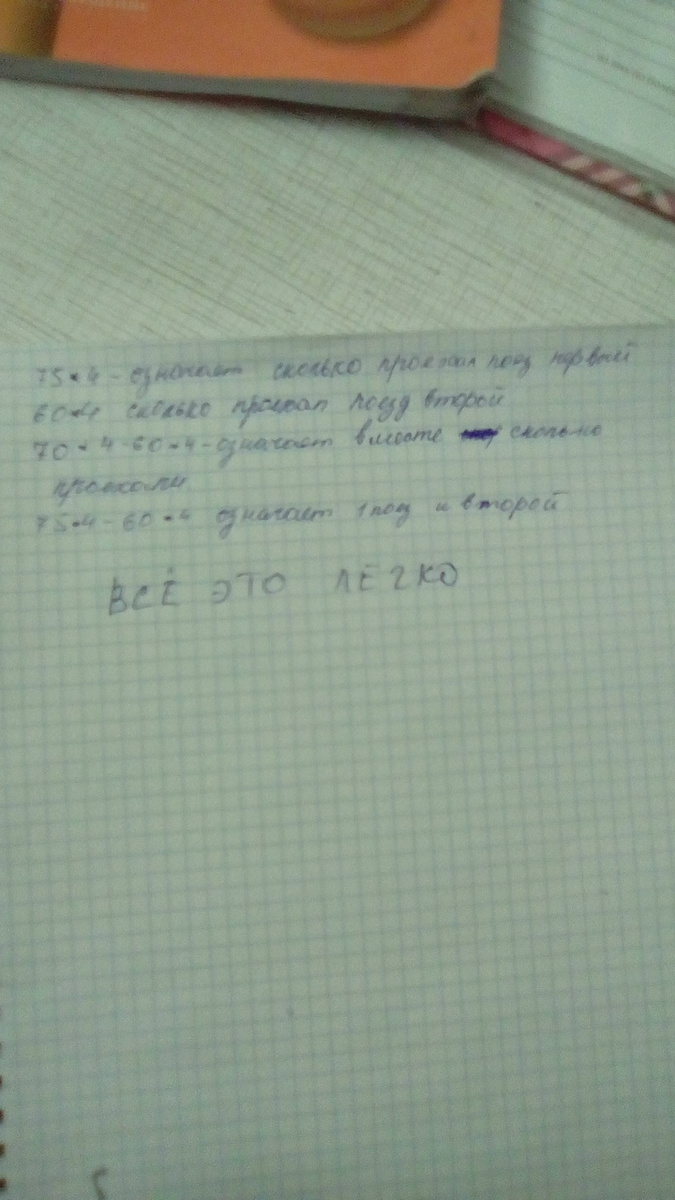 75·4 - означает сколько проехал поезд первый
60·4 сколько проехал поезд второй
70·4-60·4-означает вместе сколько
проехали
75·4-60·4 означает 1 поезд и второй
ВСЁ ЭТО ЛЕГКО